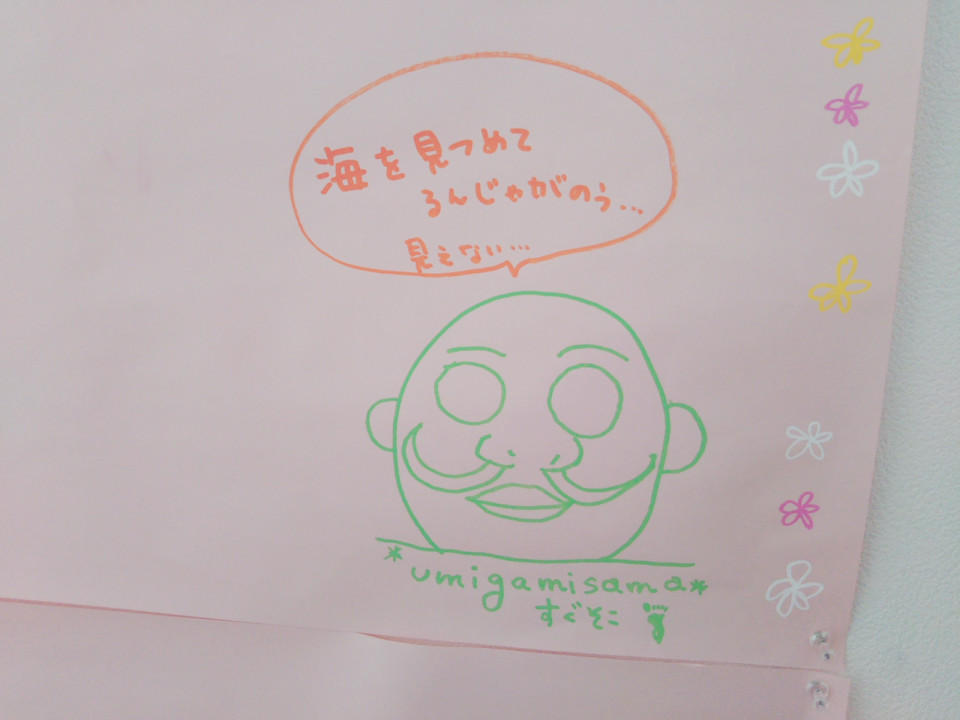 海を見つめて
るんじゃがのう…
見えない…
*umigamisama*
すぐそこ